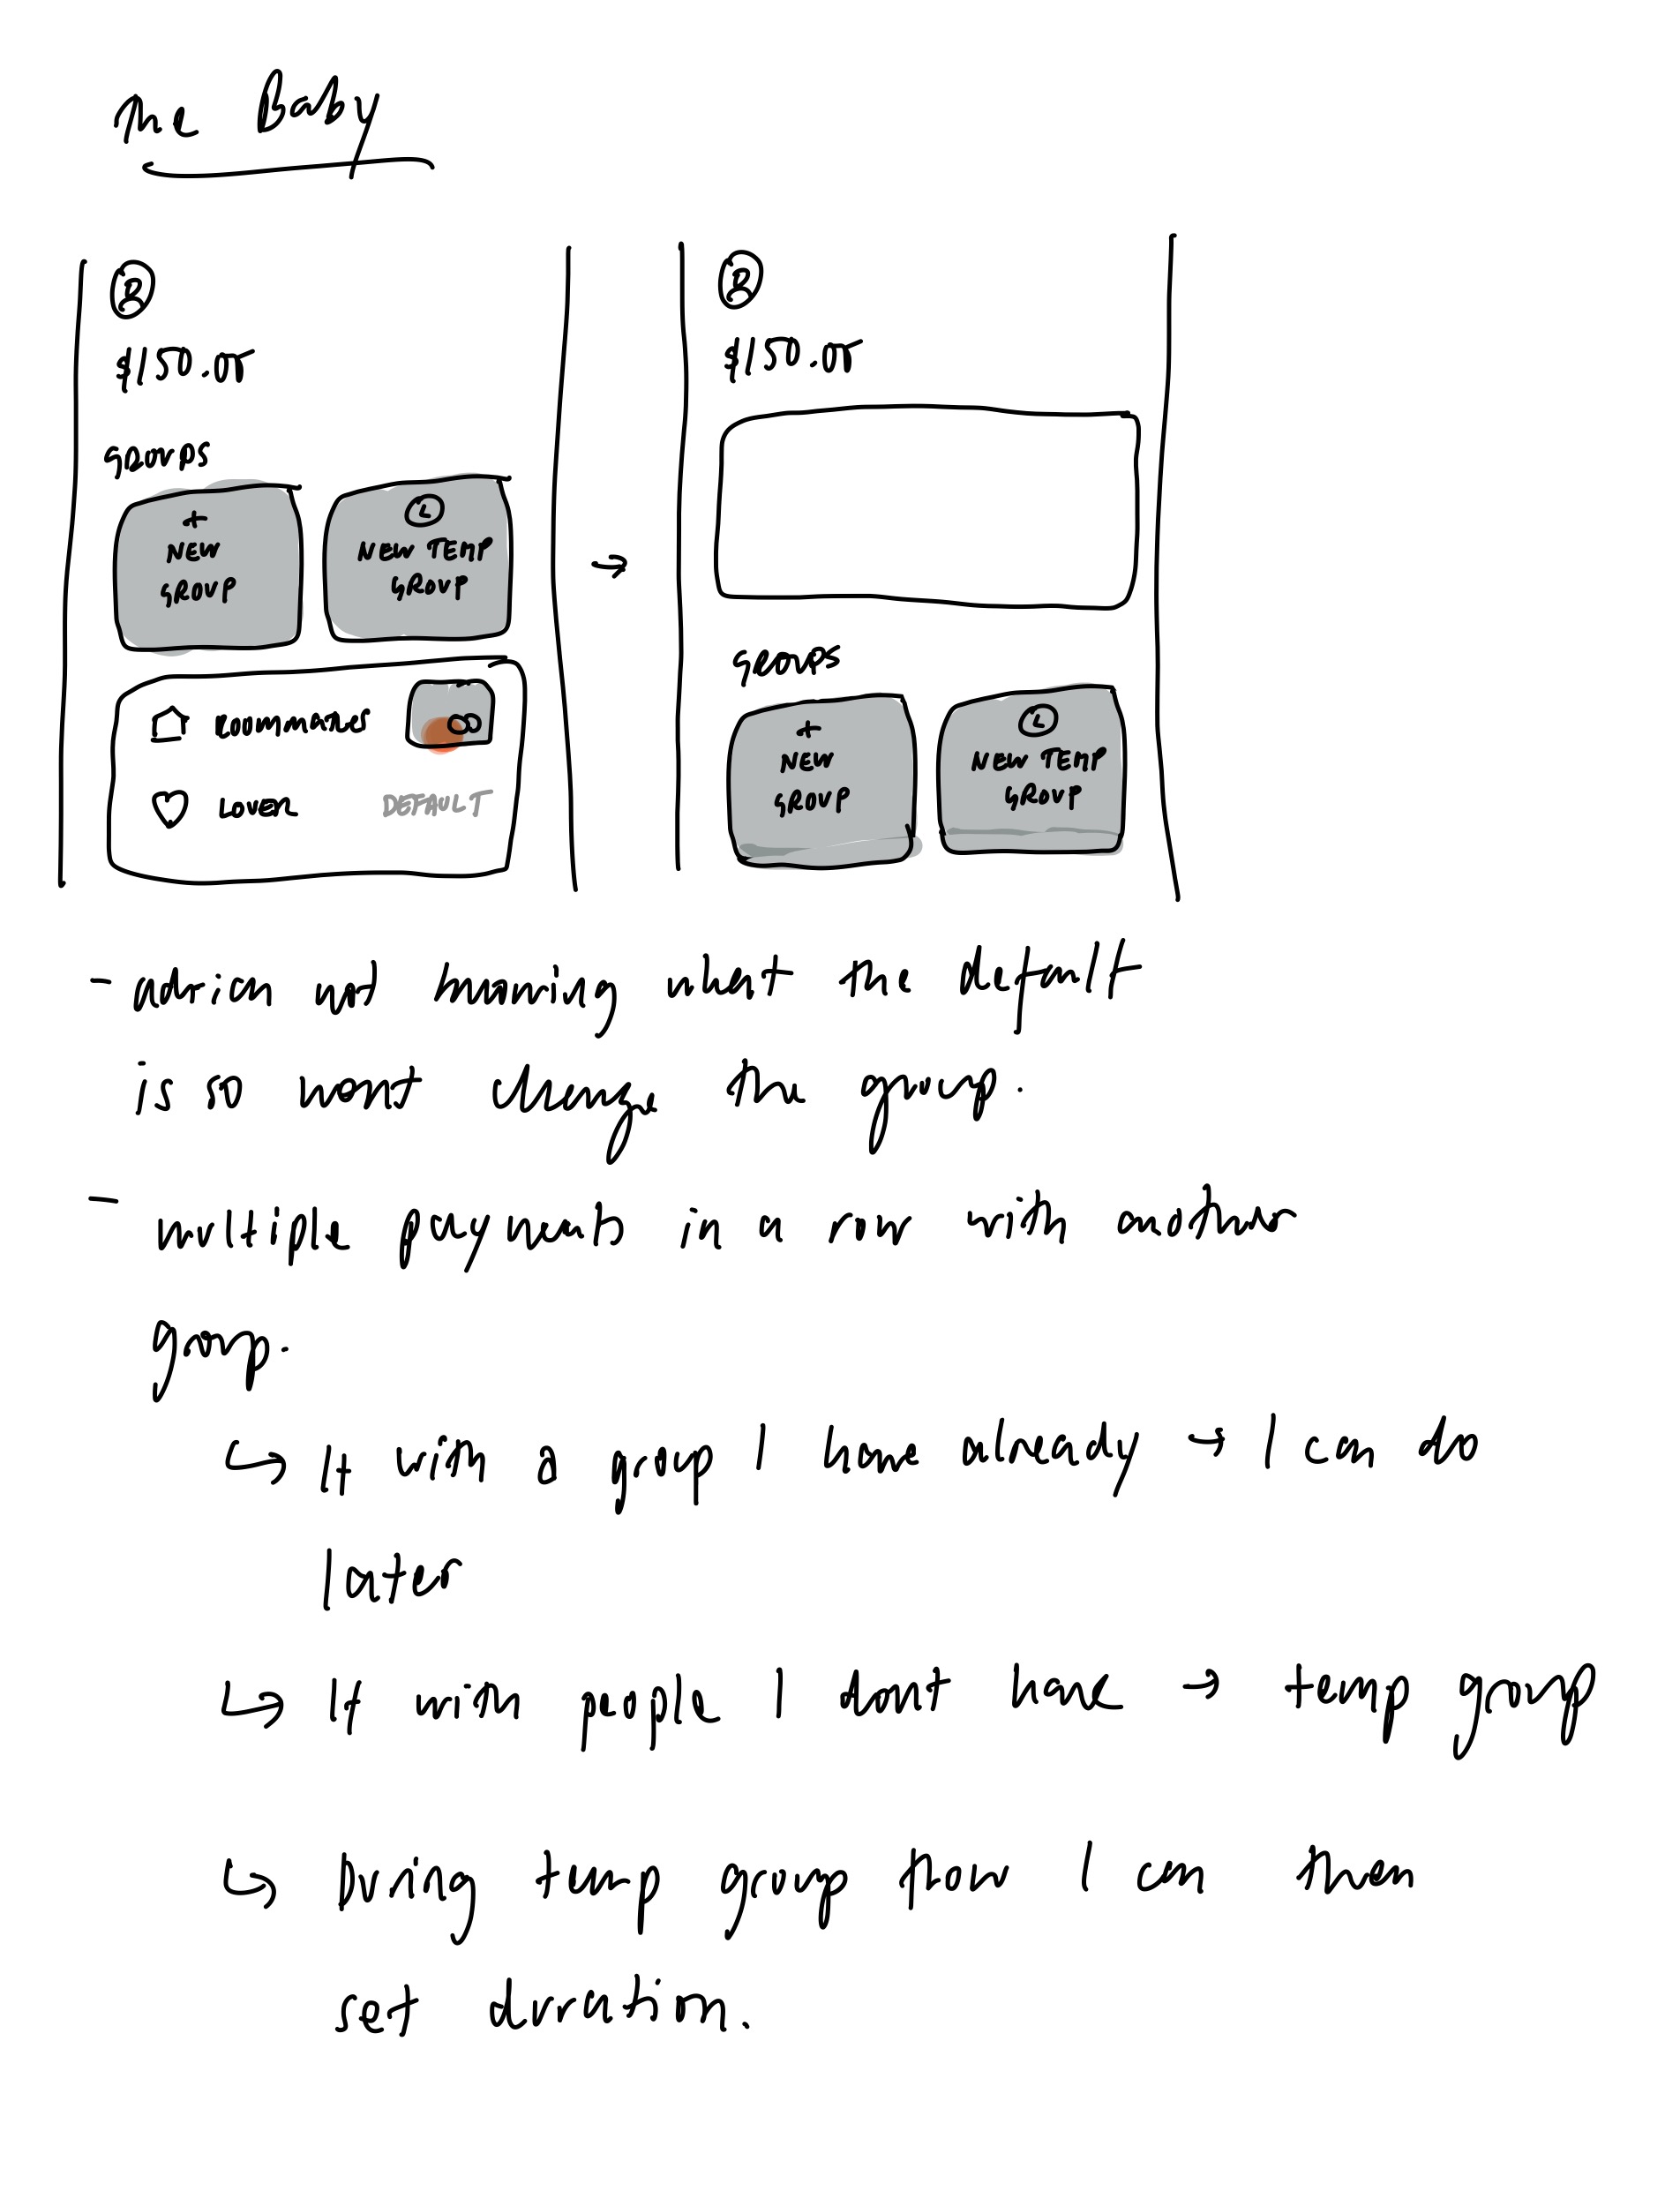 The Baby
$150.00
GROUPS
+
NEW
GROUP
NEW TEMP
GROUP
ROOMMATES
LOVER DEFAULT
$150.00
GROUPS
+
NEW
GROUP
NEW TEMP
GROUP
- adrian not knowing what the default
is so wont change the group.
- multiple payments in a row with another
group.
↳ If with a group I have already → I can do
later
↳ If with people I dont have → temp group
↳ During temp group flow I can then
set duration.